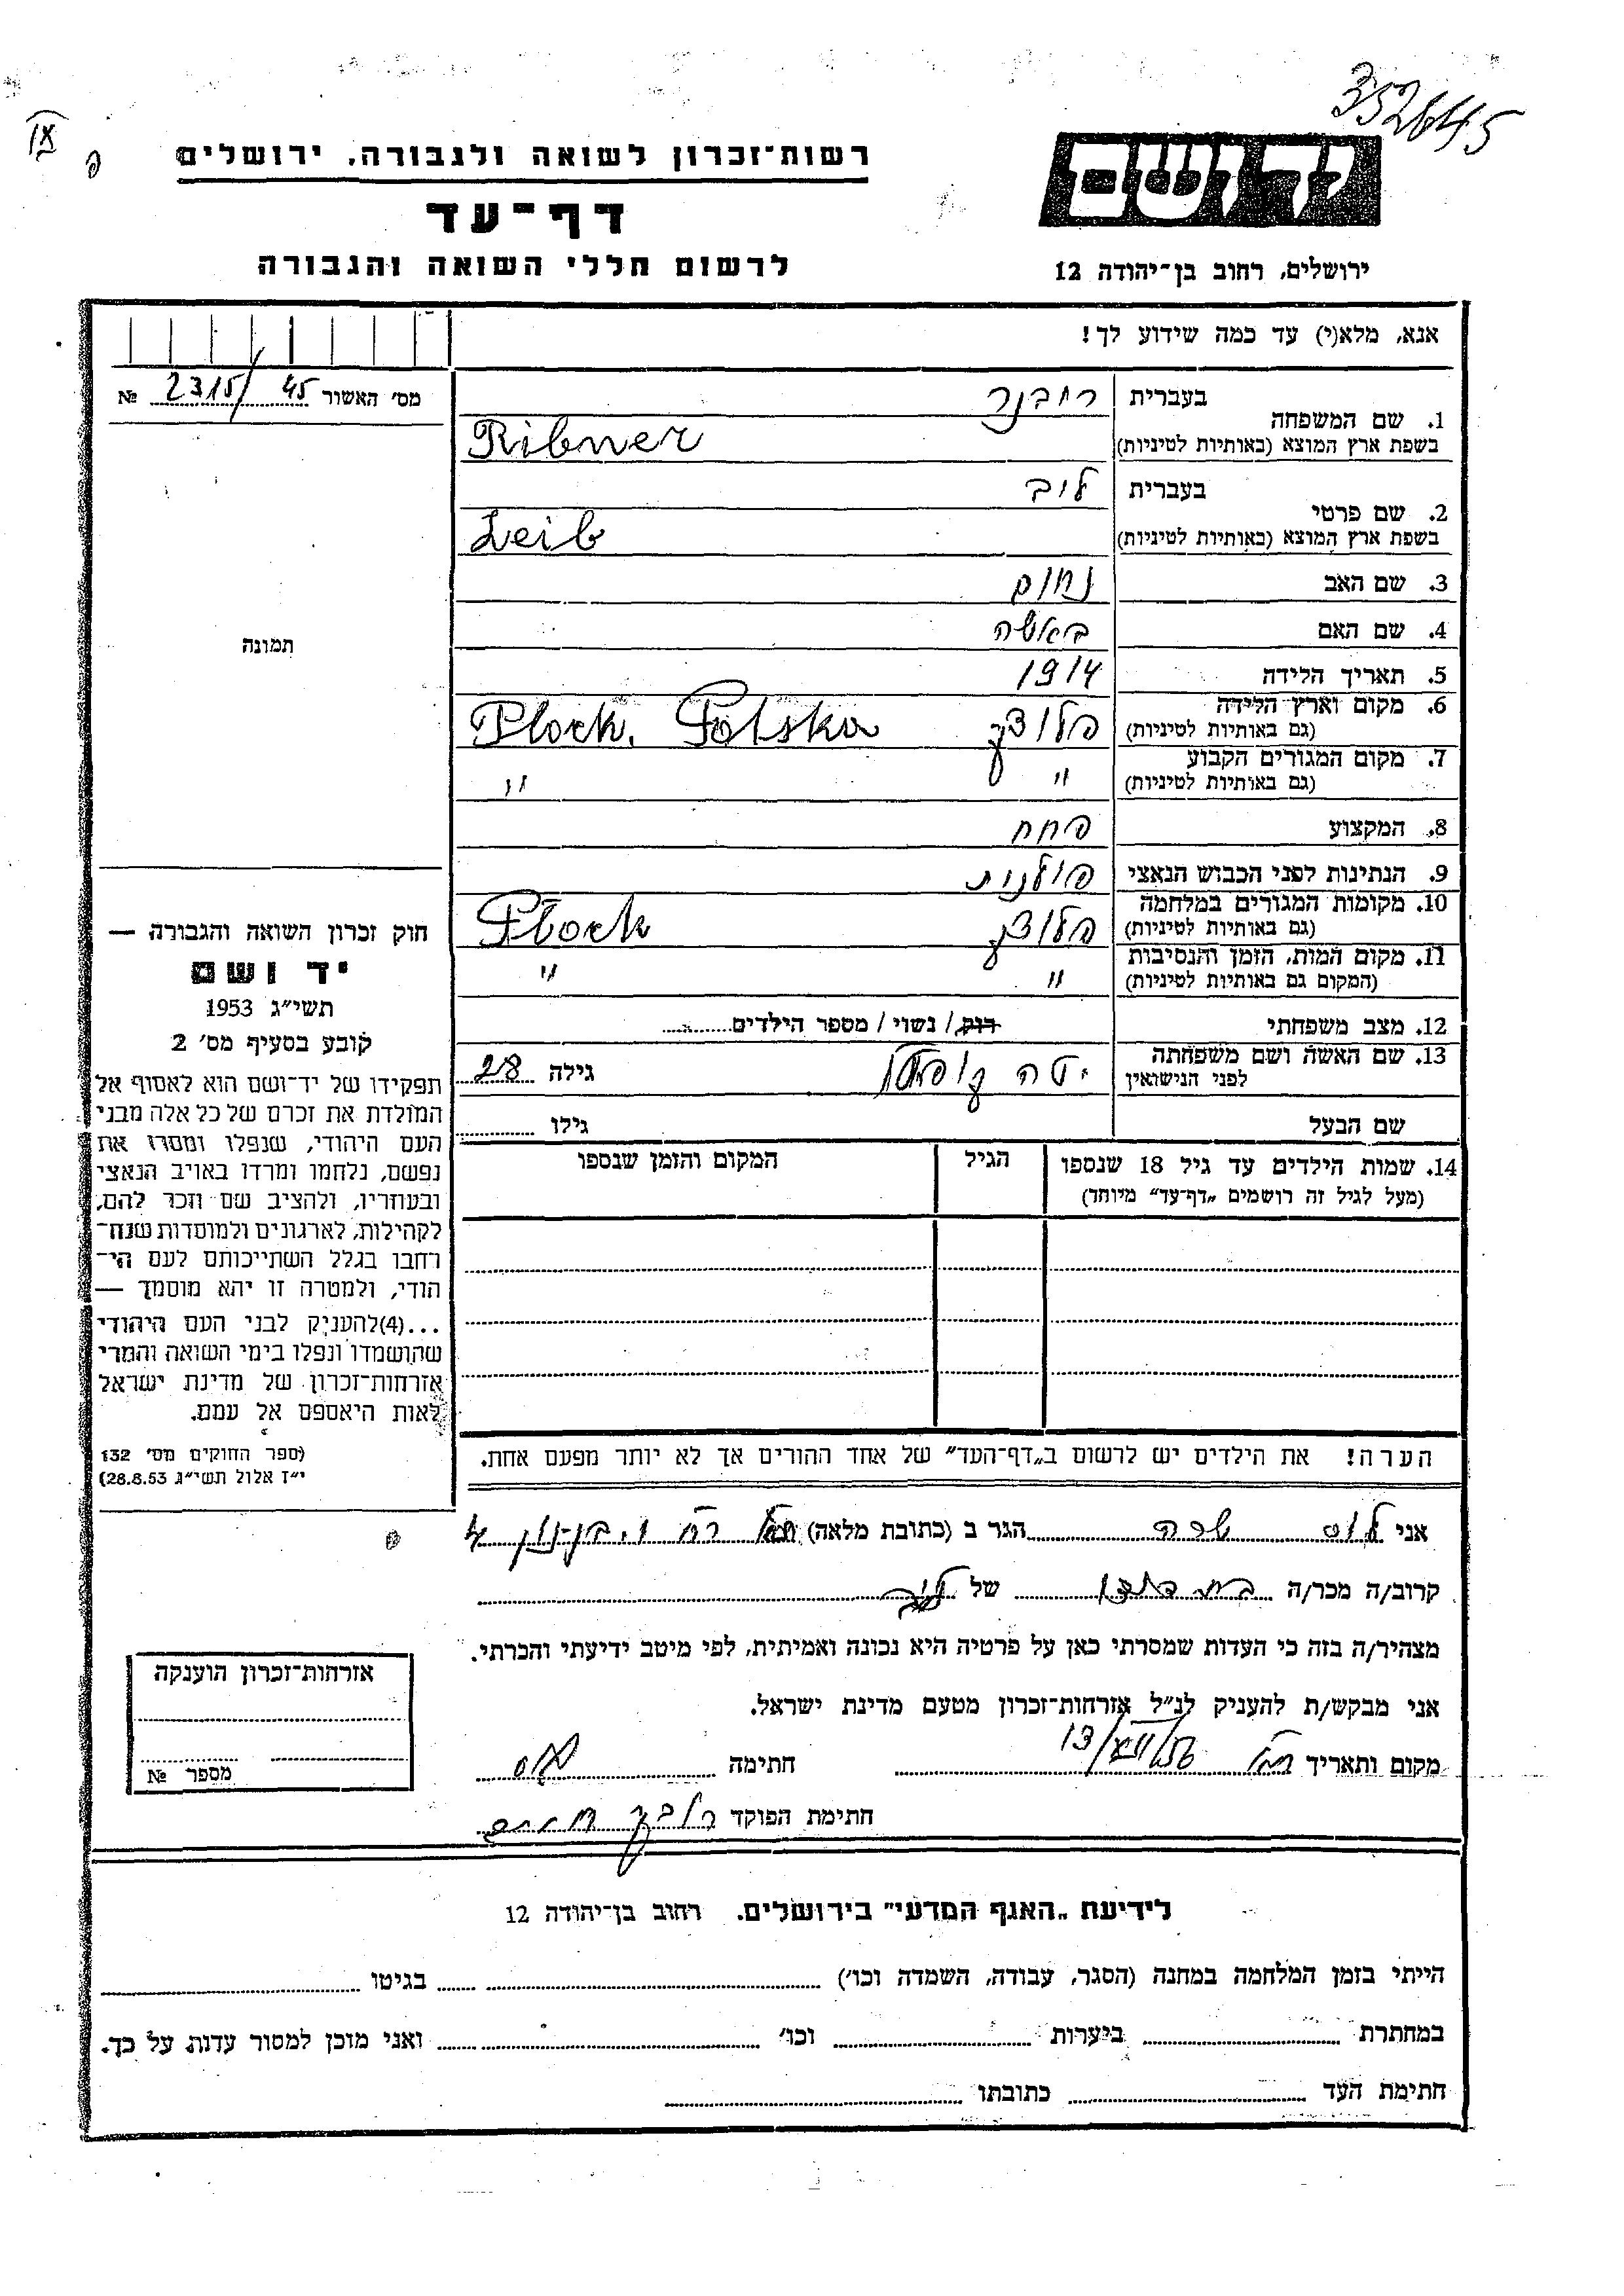 352645
רשות־זכרון לשואה ולגבורה, ירושלים
דף־עד
לרשום חללי השואה והגבורה
יד ושם
ירושלים, רחוב בן־יהודה 12
אנא, מלא(י) עד כמה שידוע לך!
מס׳ האשור 45 / 2315 №
1. שם המשפחה
בעברית ריבנר
בשפת ארץ המוצא (באותיות לטיניות) Ribner
2. שם פרטי
בעברית ליב
בשפת ארץ המוצא (באותיות לטיניות) Leib
3. שם האב נחום
4. שם האם באשה
5. תאריך הלידה 1914
6. מקום וארץ הלידה
(גם באותיות לטיניות) פלוצק Plock. Polska
7. מקום המגורים הקבוע
(גם באותיות לטיניות) " "
8. המקצוע פחח
9. הנתינות לפני הכבוש הנאצי פולנית
10. מקומות המגורים במלחמה
(גם באותיות לטיניות) פלוצק Płock
11. מקום המות, הזמן והנסיבות
(המקום גם באותיות לטיניות) " "
12. מצב משפחתי רוק / נשוי / מספר הילדים
13. שם האשה ושם משפחתה
לפני הנישואין יטה גילה 28
שם הבעל גילו
14. שמות הילדים עד גיל 18 שנספו
(מעל לגיל זה רושמים „דף־עד" מיוחד)
הגיל
המקום והזמן שנספו
הערה! את הילדים יש לרשום ב„דף־העד" של אחד ההורים אך לא יותר מפעם אחת.
תמונה
חוק זכרון השואה והגבורה —
יד ושם
תשי״ג 1953
קובע בסעיף מס׳ 2
תפקידו של יד־ושם הוא לאסוף אל
המולדת את זכרם של כל אלה מבני
העם היהודי, שנפלו ומסרו את
נפשם, נלחמו ומרדו באויב הנאצי
ובעוזריו, ולהציב שם וזכר להם,
לקהילות, לארגונים ולמוסדות שנח־
רחבו בגלל השתייכותם לעם הי־
הודי, ולמטרה זו יהא מוסמך —
...(4)להעניק לבני העם היהודי
שהושמדו ונפלו בימי השואה והמרי
אזרחות־זכרון של מדינת ישראל
לאות היאספם אל עמם.
(ספר החוקים מס׳ 132
י״ז אלול תשי״ג 28.8.53)
אני שרה הגר ב (כתובת מלאה)
קרוב/ה מכר/ה של ליב
מצהיר/ה בזה כי העדות שמסרתי כאן על פרטיה היא נכונה ואמיתית, לפי מיטב ידיעתי והכרתי.
אני מבקש/ת להעניק לנ״ל אזרחות־זכרון מטעם מדינת ישראל.
מקום ותאריך חתימה
חתימת הפוקד
אזרחות־זכרון הוענקה
מספר №
לידיעת „האגף המדעי" בירושלים. רחוב בן־יהודה 12
הייתי בזמן המלחמה במחנה (הסגר, עבודה, השמדה וכו׳) בגיטו
במחתרת ביערות וכו׳ ואני מוכן למסור עדות על כך.
חתימת העד כתובתו